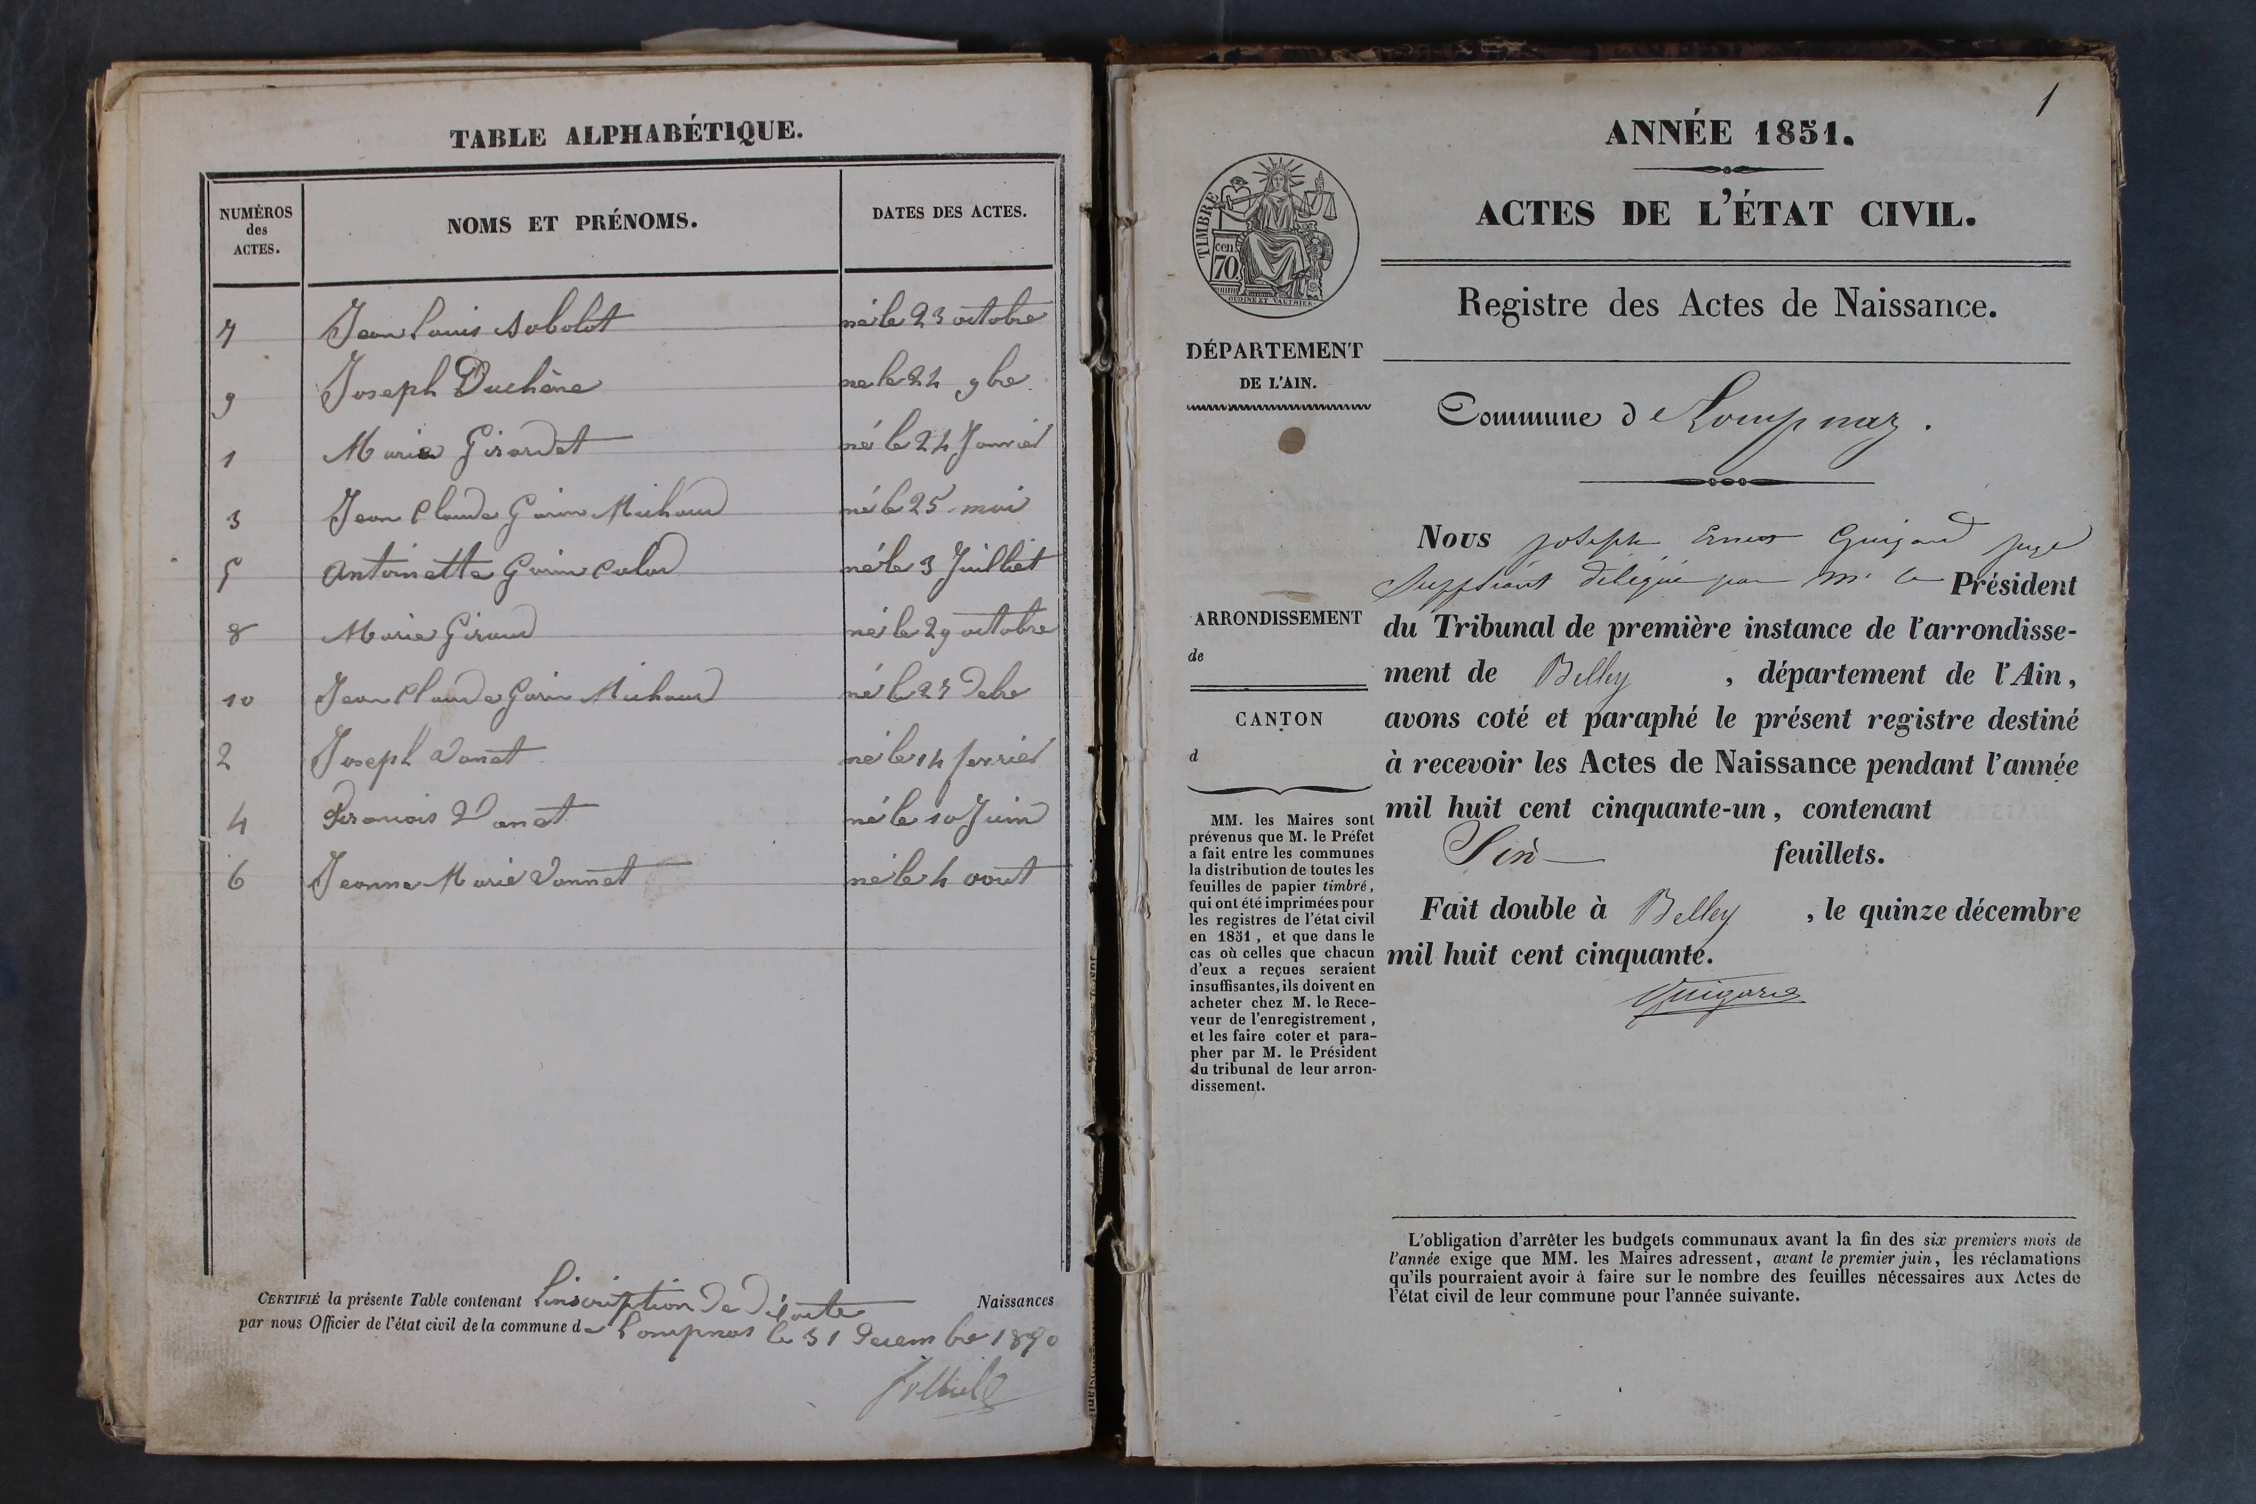 TABLE ALPHABÉTIQUE.
NUMÉROS des ACTES. NOMS ET PRÉNOMS. DATES DES ACTES.
7 Jean Louis né le 23 octobre
9 Joseph Duchêne né le 24 9bre
1 Marie Girardet né le 24 Janvier
3 Jean Claude Garin Michaud né le 25 mai
5 Antoinette Garin né le 3 Juilliet
8 Marie Giraud né le 29 octobre
10 Jean Claude Garin Michaud né le 25 Debre
2 Joseph Vanet né le 14 fevrier
4 Francois Vanet né le 10 Juin
6 Jeanne Marie Vannet né le 4 aout
CERTIFIÉ la présente Table contenant l'inscription de dix actes Naissances
par nous Officier de l'état civil de la commune de Lompnas le 31 decembre 1850
1
ANNÉE 1851.
ACTES DE L'ÉTAT CIVIL.
TIMBRE
cen
70
OUDINÉ ET VAUTHIER
Registre des Actes de Naissance.
DÉPARTEMENT
DE L'AIN.
Commune de Lompnaz.
ARRONDISSEMENT
de
CANTON
d
MM. les Maires sont
prévenus que M. le Préfet
a fait entre les communes
la distribution de toutes les
feuilles de papier timbré,
qui ont été imprimées pour
les registres de l'état civil
en 1851, et que dans le
cas où celles que chacun
d'eux a reçues seraient
insuffisantes, ils doivent en
acheter chez M. le Rece-
veur de l'enregistrement,
et les faire coter et para-
pher par M. le Président
du tribunal de leur arron-
dissement.
Nous Joseph Ernest Guigard juge
Suppléant délégué par Mr le Président
du Tribunal de première instance de l'arrondisse-
ment de Belley, département de l'Ain,
avons coté et paraphé le présent registre destiné
à recevoir les Actes de Naissance pendant l'année
mil huit cent cinquante-un, contenant
Six feuillets.
Fait double à Belley, le quinze décembre
mil huit cent cinquante.
Guigard
L'obligation d'arrêter les budgets communaux avant la fin des six premiers mois de
l'année exige que MM. les Maires adressent, avant le premier juin, les réclamations
qu'ils pourraient avoir à faire sur le nombre des feuilles nécessaires aux Actes de
l'état civil de leur commune pour l'année suivante.